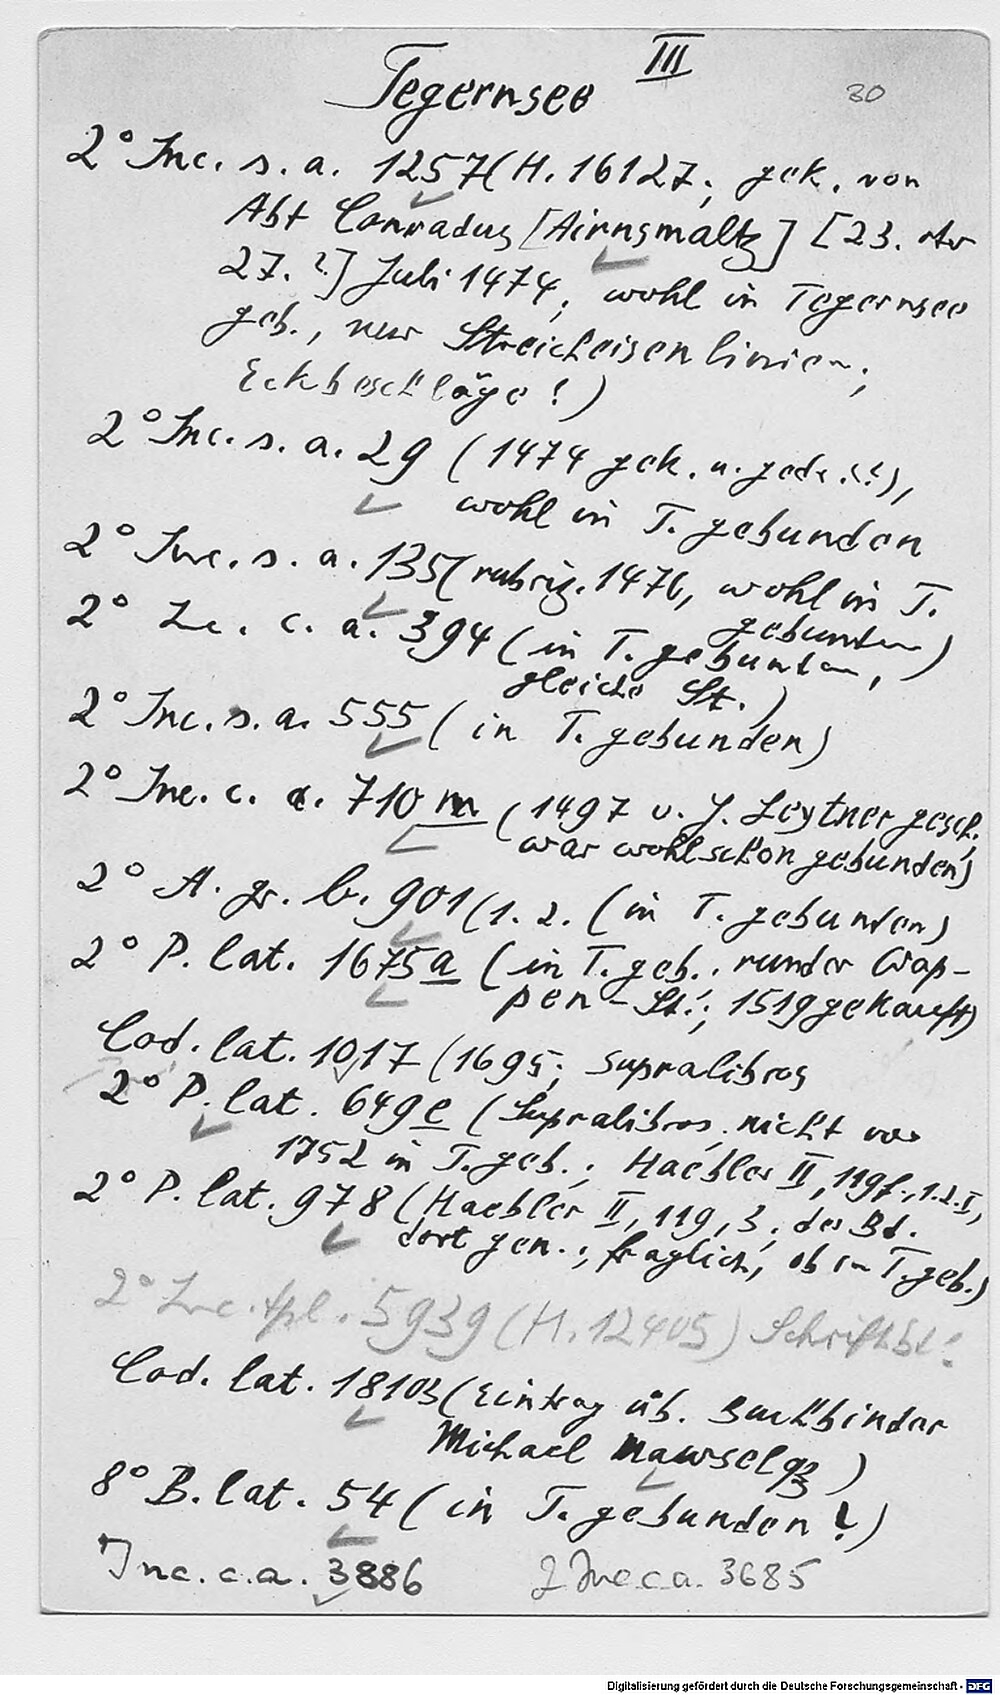 III
Tegernsee
30
2° Inc. s. a. 1257 (H. 16127; gek. von
Abt Conradus [Airnsmaltz] [23. oder
27. ?] Juli 1474, wohl in Tegernsee
geb., nur Streicheisenlinien,
Eckbeschläge!)
2° Inc. s. a. 29 (1474 gek. u. gedr. (?),
wohl in T. gebunden
2° Inc. s. a. 135 (rubriz. 1476, wohl in T.
gebunden)
2° Inc. c. a. 394 (in T. gebunden,
gleiche St.)
2° Inc. s. a. 555 (in T. gebunden)
2° Inc. c. a. 710 m (1497 v. J. Leytner gesch.,
war wohl schon gebunden)
2° A. gr. b. 901 (1. 2. (in T. gebunden)
2° P. lat. 1675a (in T. geb., runder Wap-
pen-St.; 1519 gekauft)
Cod. lat. 1017 (1695; Supralibros
2° P. lat. 649e (Supralibros, nicht vor
1752 in T. geb.; Haebler II, 119f., 1. 2. I,
2° P. lat. 978 (Haebler II, 119, 3; der Bd.
dort gen.; fraglich, ob in T. geb.)
2° Inc. 5939 (H. 12405) Schriftbd!
Cod. lat. 18103 (Eintrag üb. Buchbinder
Michael)
8° B. lat. 54 (in T. gebunden?)
Inc. c. a. 3886
2 Inc c a. 3685
Digitalisierung gefördert durch die Deutsche Forschungsgemeinschaft - DFG